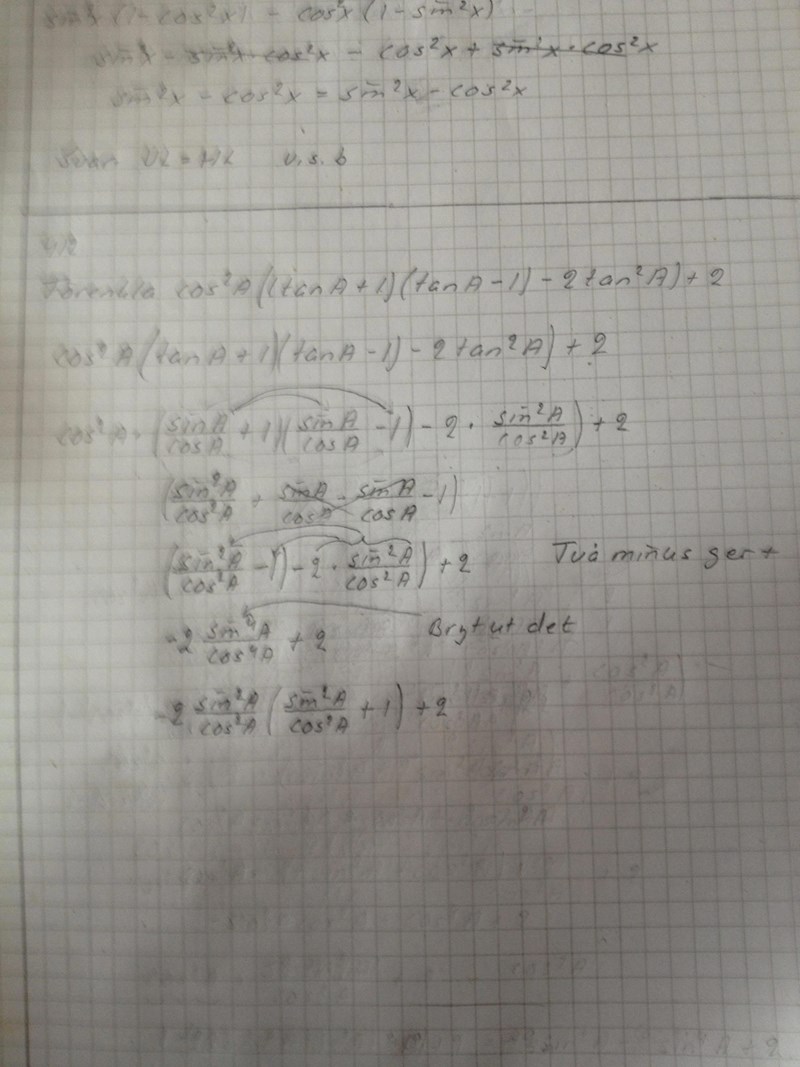 sin²x (1 - cos²x) - cos²x (1 - sin²x)
sin²x - sin²x · cos²x - cos²x + sin²x · cos²x
sin²x - cos²x = sin²x - cos²x
VL = HL v.s.b
Förenkla cos²A((tanA+1)(tanA-1) - 2tan²A)+2
cos²A(tanA+1)(tanA-1) - 2tan²A)+2
cos²A · (sinA/cosA + 1)(sinA/cosA - 1) - 2 · sin²A/cos²A) + 2
(sin²A/cos²A - sinA/cosA - sinA/cosA - 1)
(sin²A/cos²A - 1) - 2 · sin²A/cos²A) + 2 Två minus ger +
-2 sin⁴A/cos⁴A + 2 Bryt ut det
-2 sin²A/cos²A (sin²A/cos²A + 1) + 2